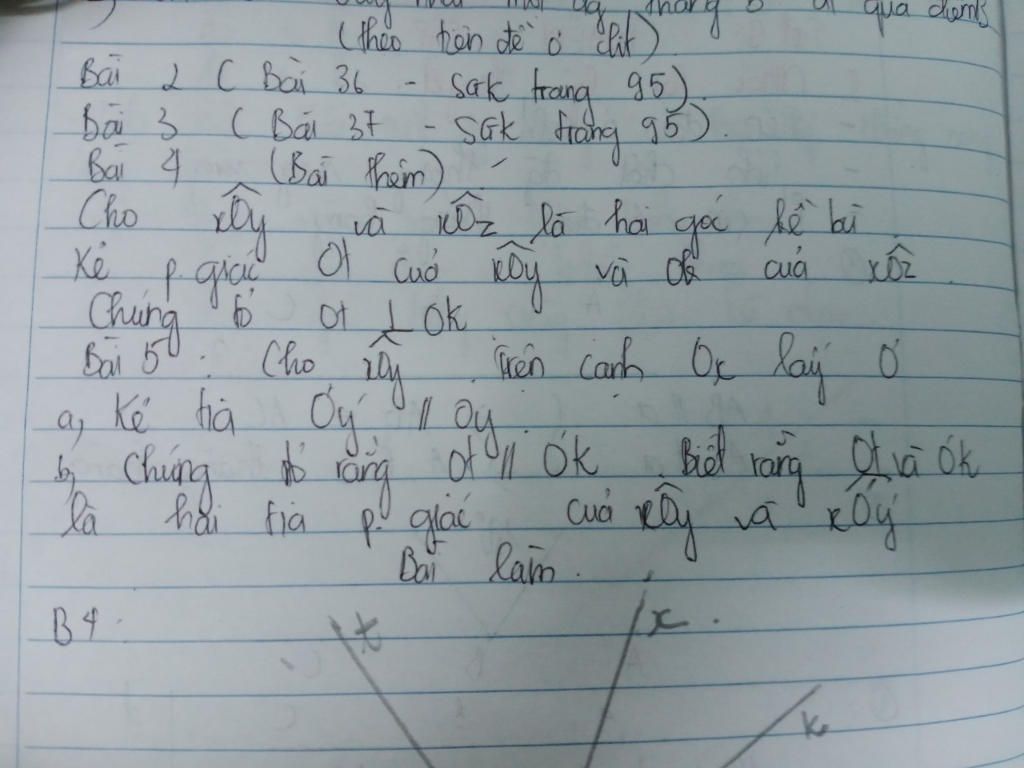 thẳng qua điểm
(theo tiên đề ơ clit)
Bài 2 (Bài 36 - SGK trang 95).
Bài 3 (Bài 37 - SGK trang 95).
Bài 4 (Bài thêm)
Cho xÔy và xÔz là hai góc kề bù
Kẻ p.giác Ot của xÔy và Ok của xÔz
Chứng tỏ Ot ⊥ Ok
Bài 5 : Cho xÔy. Trên cạnh Ox lấy O'
a, Kẻ tia O'y' // Oy.
b, Chứng tỏ rằng Ot // O'k. Biết rằng Ot và O'k
là hai tia p.giác của xÔy và xÔ'y'
Bài làm.
B4:
t x .
k